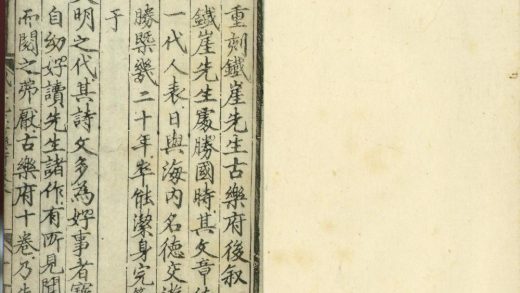 重刻鐵崖先生古樂府後叙
鐵崖先生處勝國時其文章
一代人表日與海内名德交遊
勝槩幾二十年卒能潔身完
于
明之代其詩文多為好事者
自㓜好讀先生諸作有所見
不閱之弗厭古樂府十卷乃